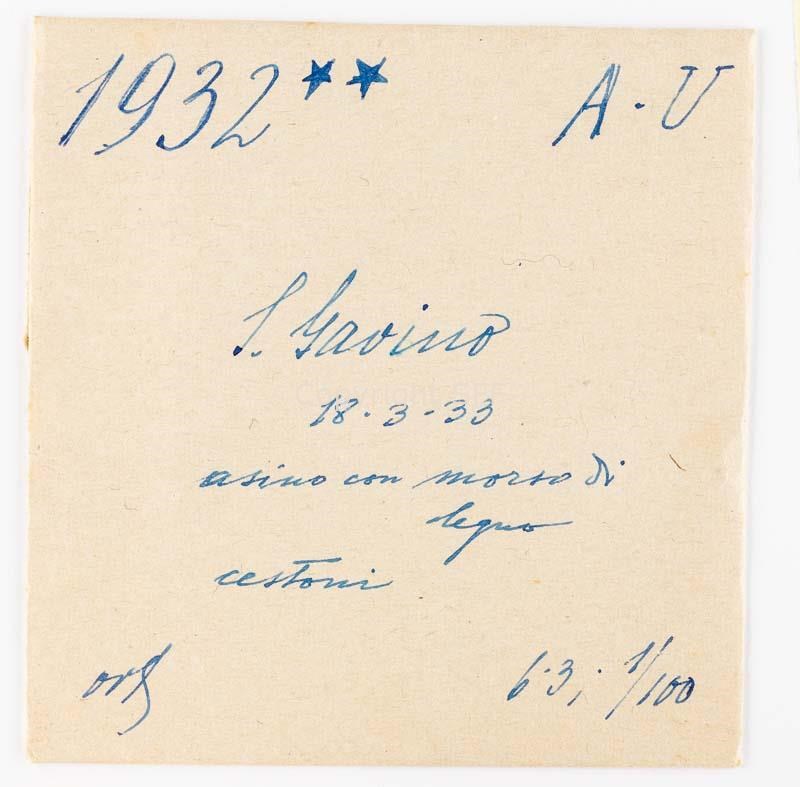 1932 ★★ A·U
S. Gavino
18·3-33
asino con morso di
legno
cestoni
6·3; 1/100